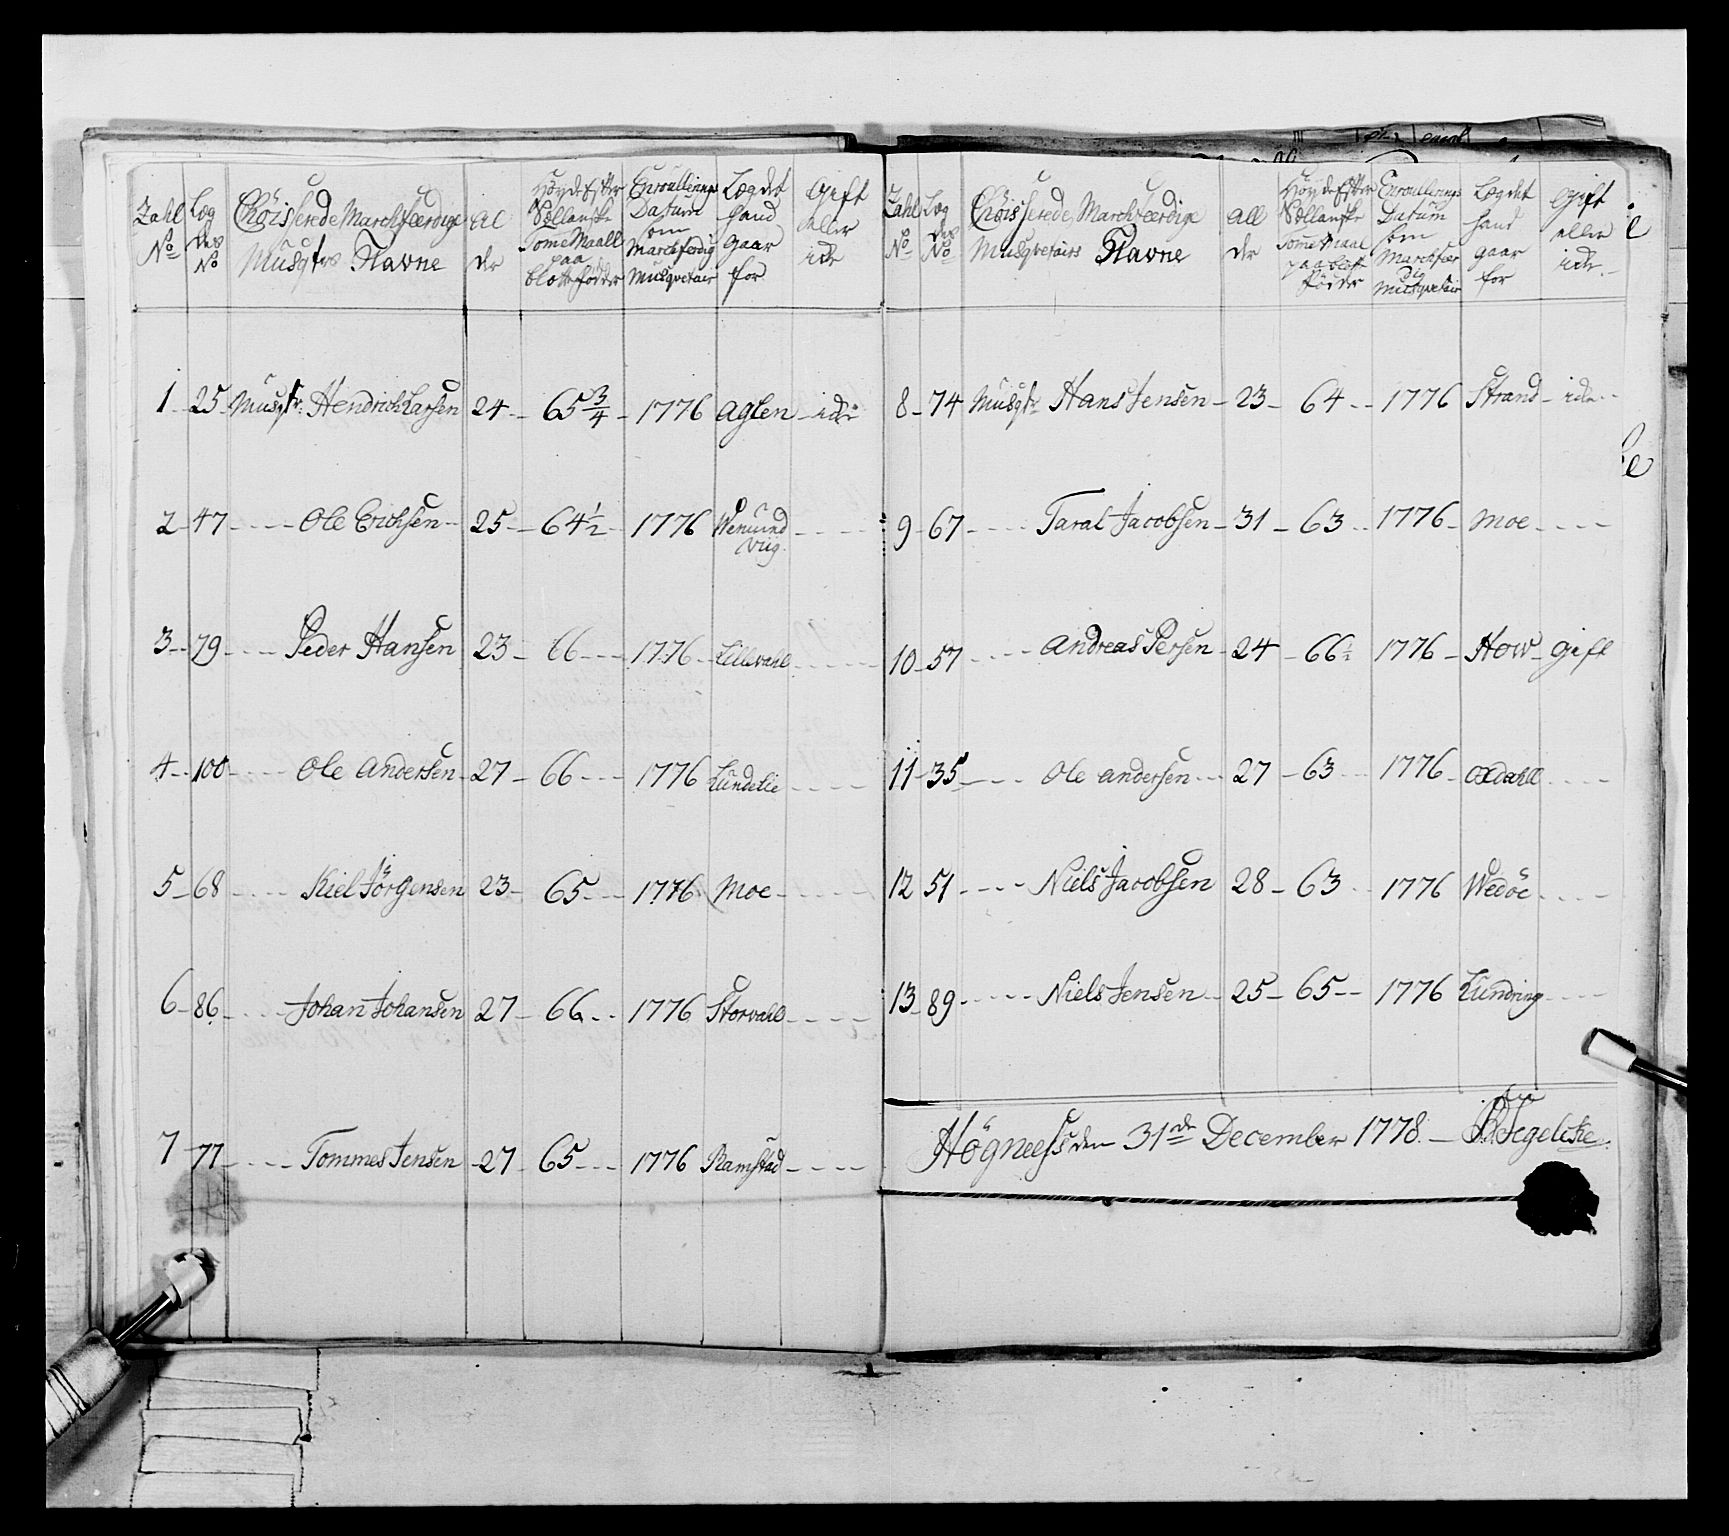 Zahl No | Læg des No | Chöisserede Marchfærdige Musqtrs Navne | Al der | Höyde Efter Sællanske Tome Maall paa blotte födder | Enroullerings Datum som Marchferdig Musqvetair | Lægdet hand gaar for | Gift eller icke
1 25 Musqtr. Hendrich Larsen 24 65 3/4 1776 Aglen icke
2 47 Ole Erichsen 25 64 1/2 1776 Wemundviig
3 79 Peder Hansen 23 66 1776 Lillevahl
4 100 Ole Andersen 27 66 1776 Lundelie
5 68 Kiel Jörgensen 23 65 1776 Moe
6 86 Johan Johansen 27 66 1776 Storvahl
7 77 Tommes Jensen 27 65 1776 Ramstad
Zahl No | Læg des No | Chöisserede Marchfærdige Musqvetairs Navne | All der | Höyde Efter Sællanske Tome Maal paa blotte Födder | Enroullerings Datum som Marchfærdig Musqvetair | Lægdet hand gaar for | Gift eller icke
8 74 Musqtr Hans Jensen 23 64 1776 Strand icke
9 67 Taral Jacobsen 31 63 1776 Moe
10 57 Andreas Persen 24 66 1/2 1776 How gift
11 35 Ole Andersen 27 63 1776 Oxdahl
12 51 Niels Jacobsen 28 63 1776 Wedöe
13 89 Niels Jensen 25 65 1776 Lundring
Högnees den 31de December 1778